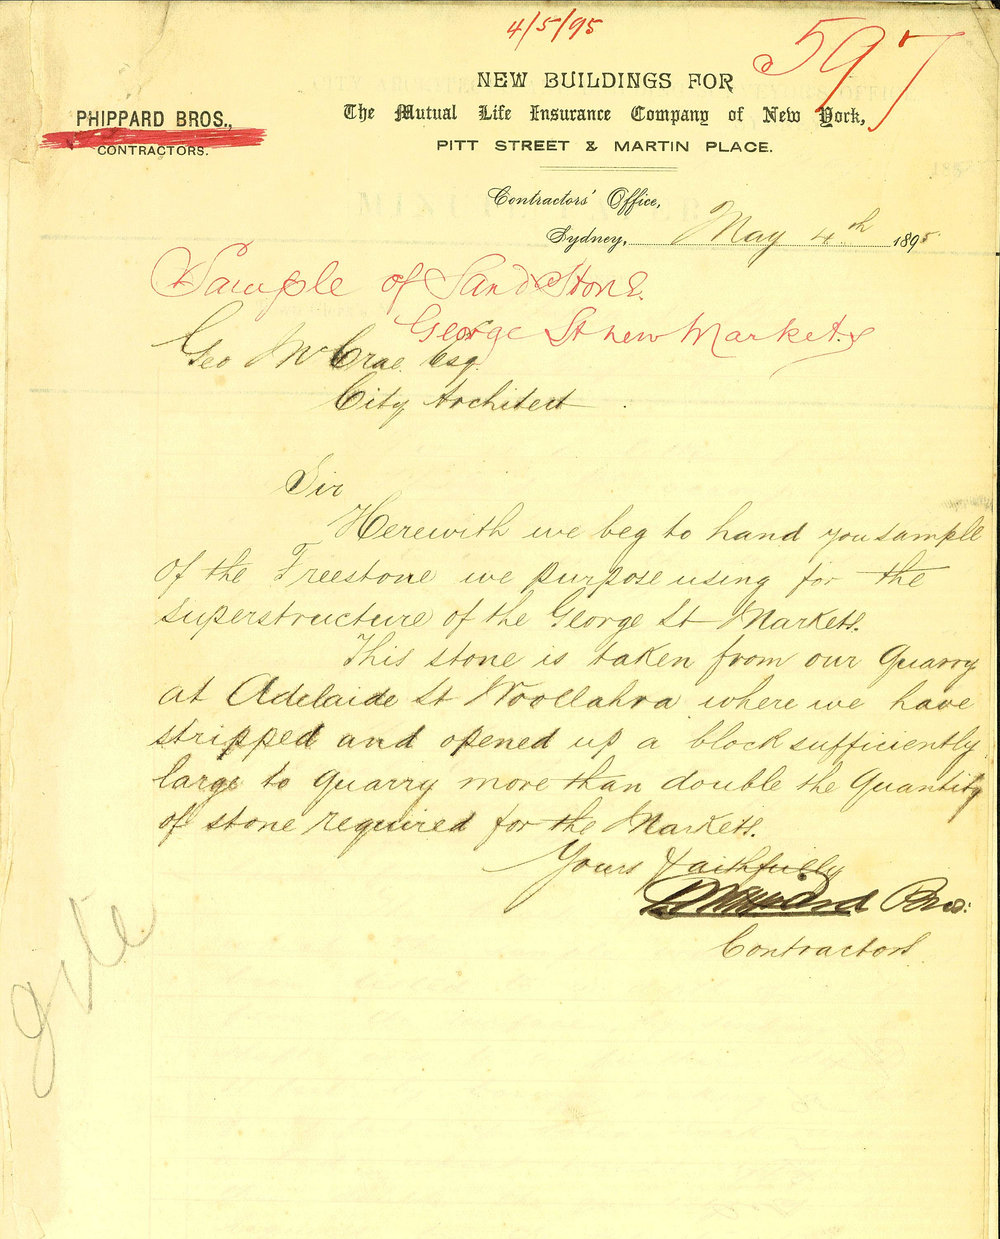 4/5/95
597
NEW BUILDINGS FOR
The Mutual Life Insurance Company of New York,
PITT STREET & MARTIN PLACE.
PHIPPARD BROS.,
CONTRACTORS.
Contractors' Office,
Sydney, May 4th 1895
Sample of Sandstone.
George St new Markets
Geo McCrae Esq.
City Architect
Sir
Herewith we beg to hand you sample
of the Freestone we purpose using for the
superstructure of the George St Markets.
This stone is taken from our Quarry
at Adelaide St Woollahra where we have
stripped and opened up a block sufficiently
large to quarry more than double the Quantity
of stone required for the Markets.
Yours faithfully
Phippard Bros:
Contractors